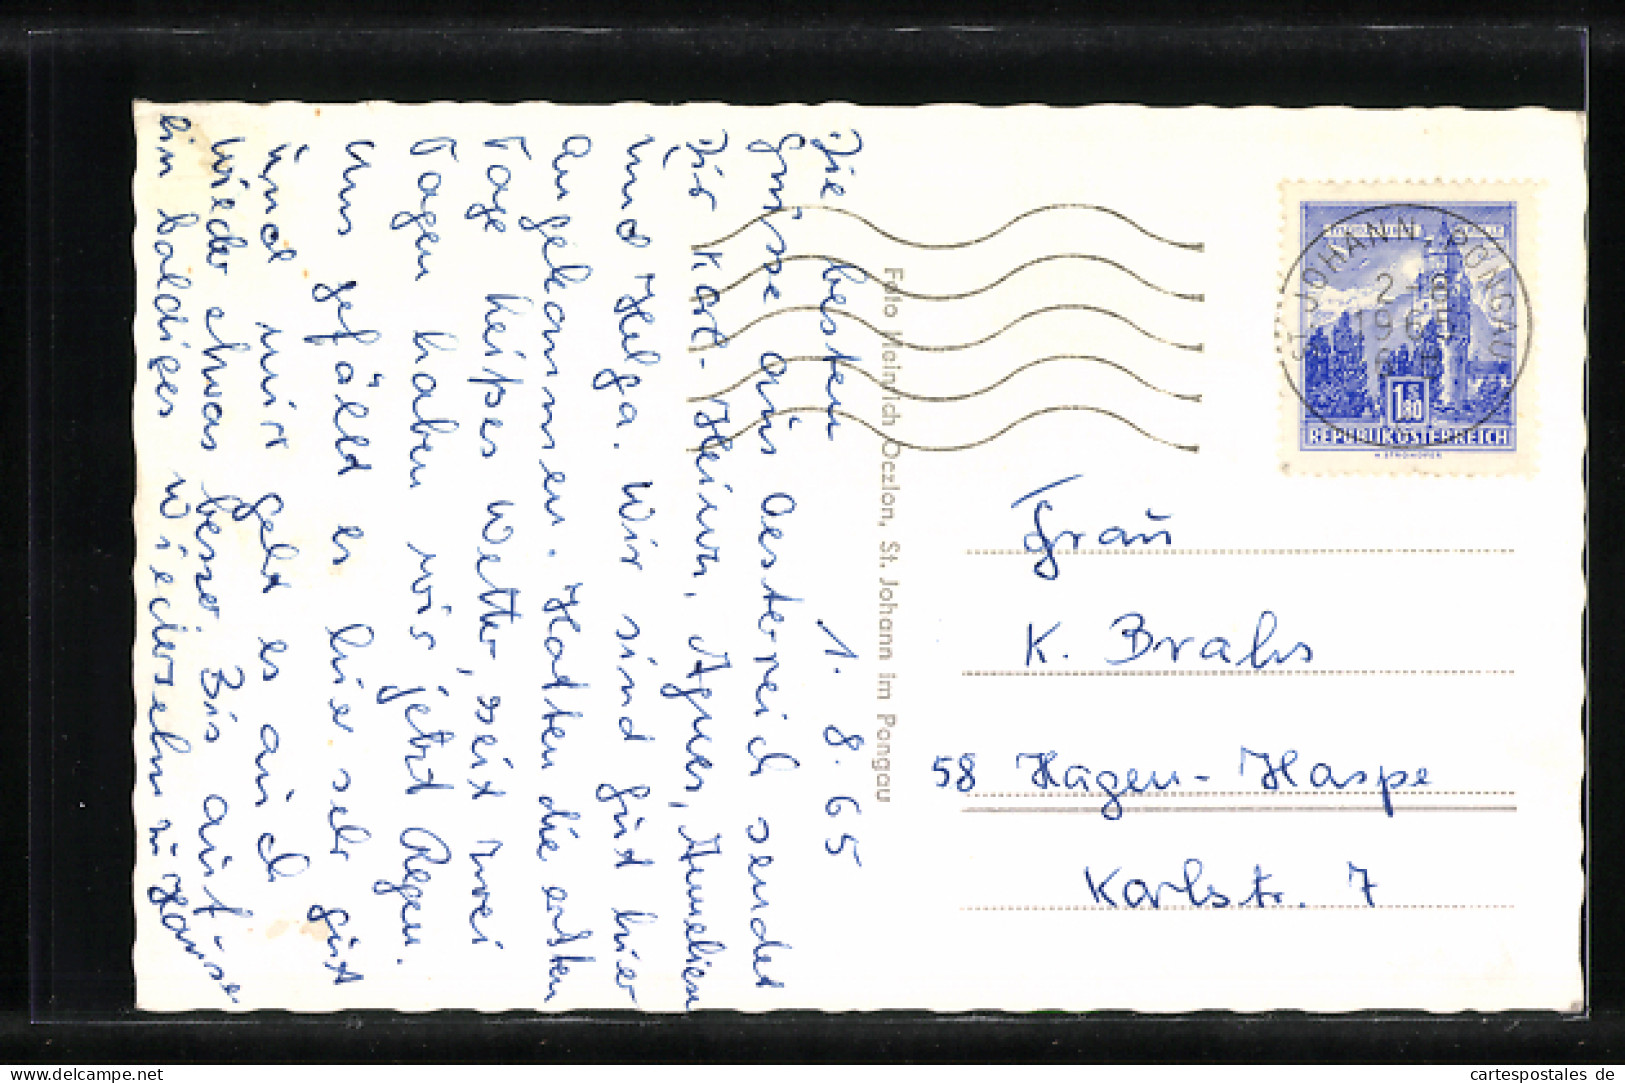 1. 8. 65
Die besten
Grüsse aus Oesterreich sendet
Dir Karl-Heinz, Agnes, Anneliese
und Helga. Wir sind gut hier
angekommen. Hatten die ersten
Tage heißes Wetter, seit zwei
Tagen haben wir jetzt Regen.
Uns gefällt es hier sehr gut
und mir geht es auch
wieder etwas besser. Bis auf
ein baldiges Wiedersehn zu Hause
Foto Heinrich Oczlon, St. Johann im Pongau
ST. JOHANN PONGAU
2-8
1965
1.80
S
REPUBLIK ÖSTERREICH
Frau
K. Brahs
58 Hagen-Haspe
Karlstr. 7
cartespostales de